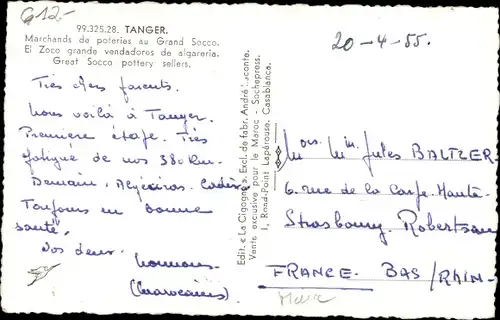 G12-
99.325.28. TANGER.
Marchands de poteries au Grand Socco.
El Zoco grande vendadores de algareria.
Great Socco pottery sellers.
20-4-55.
Très chers parents.
Nous voilà à Tanger.
Première étape. Très
fatigué de nos 380 km.
Demain, Algéciras. Cadix.
Toujours en bonne
santé.
Vos deux
(Marocains)
Edit. « La Cigogne » Excl. de fabr. André Leconte.
Vente exclusive pour le Maroc - Sochepress.
1, Rond-Point Lapérouse. Casablanca.
Jules BALTZER
6. rue de la Carpe-Haute-
Strasbourg. Robertsau
FRANCE. BAS/RHIN-
Maroc